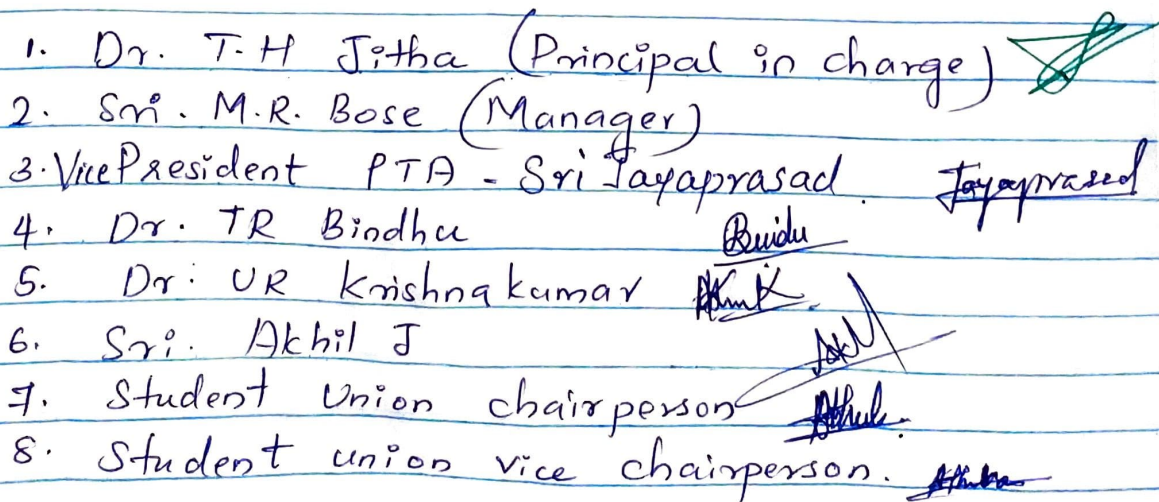 1. Dr. T.H Jitha (Principal in charge)
2. Sri. M.R. Bose (Manager)
3. Vice President PTA - Sri Jayaprasad. Jayaprasad
4. Dr. TR Bindhu Bindu
5. Dr. UR Krishnakumar
6. Sri. Akhil J
7. Student Union chairperson
8. Student union vice chairperson.